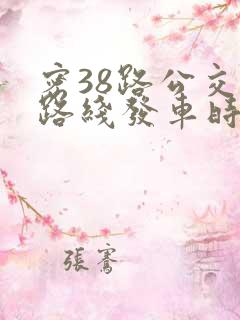 密38路公交
路綫發車時
張騫